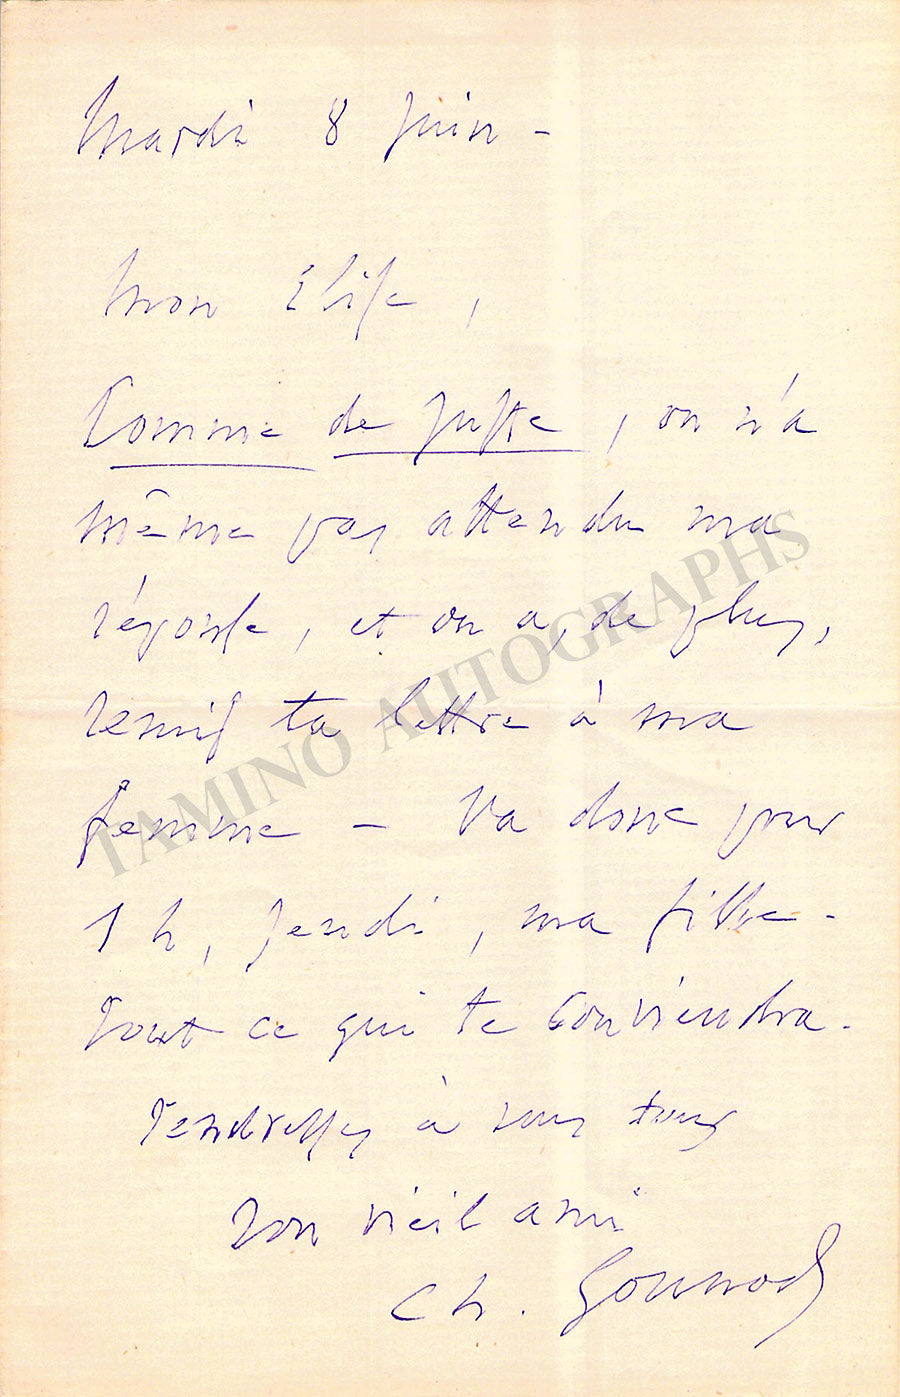 Mardi 8 Juin -
Mon Elise,
Comme de juste, on n'a
même pas attendu ma
réponse, et on a, de plus,
remis ta lettre à ma
femme - Va donc pour
1 h, Jeudi, ma fille -
Tout ce qui te conviendra.
Tendresses à vous tous
Ton vieil ami
Ch. Gounod
TAMINO AUTOGRAPHS